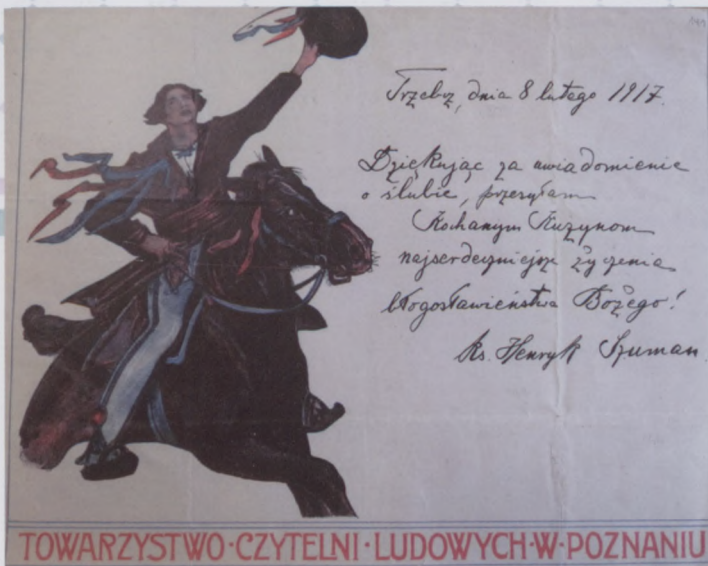 Trzebcz, dnia 8 lutego 1917.
Dziękując za uwiadomienie
o ślubie, przesyłam
Kochanym Kuzynom
najserdeczniejsze życzenia
błogosławieństwa Bożego!
ks. Henryk Szuman
TOWARZYSTWO·CZYTELNI·LUDOWYCH·W·POZNANIU